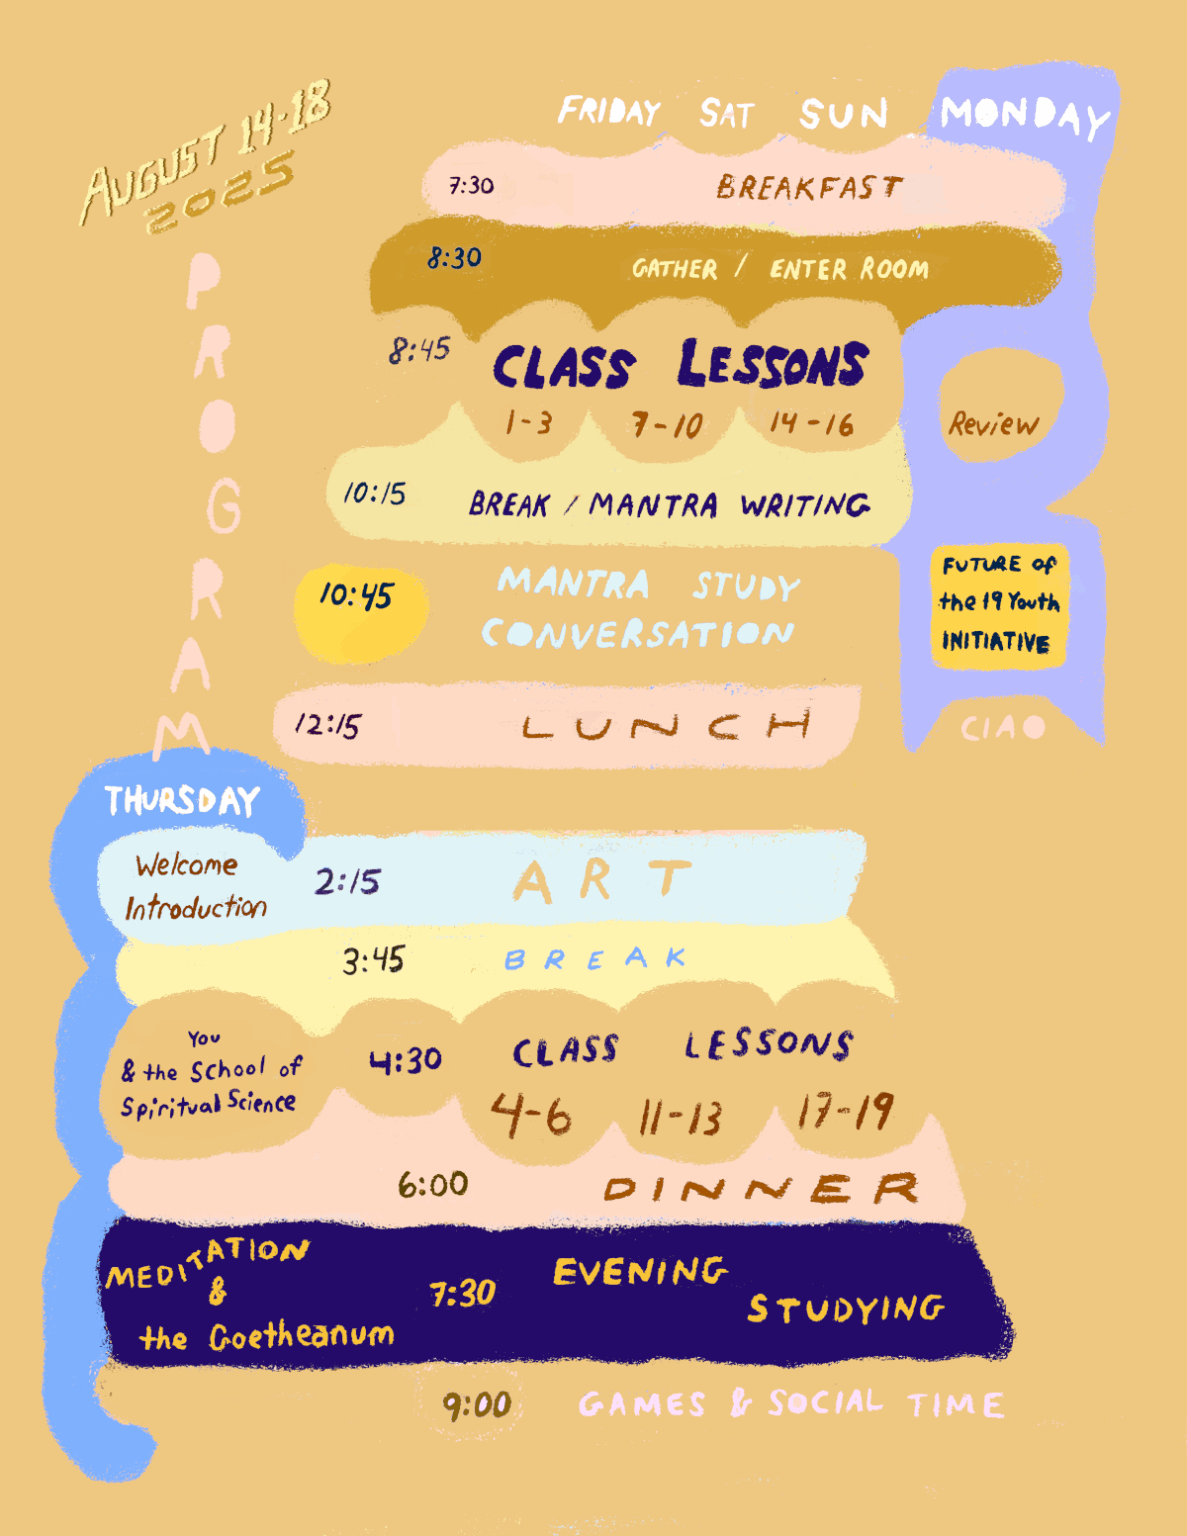 AUGUST 14-18
2025
PROGRAM
FRIDAY SAT SUN MONDAY
7:30 BREAKFAST
8:30 GATHER / ENTER ROOM
8:45 CLASS LESSONS
1-3 7-10 14-16 Review
10:15 BREAK / MANTRA WRITING
10:45 MANTRA STUDY
CONVERSATION
FUTURE of
the 19 Youth
INITIATIVE
12:15 LUNCH
CIAO
THURSDAY
Welcome
Introduction
2:15 ART
3:45 BREAK
You
& the School of
Spiritual Science
4:30 CLASS LESSONS
4-6 11-13 17-19
6:00 DINNER
MEDITATION
&
the Goetheanum
7:30 EVENING
STUDYING
9:00 GAMES & SOCIAL TIME